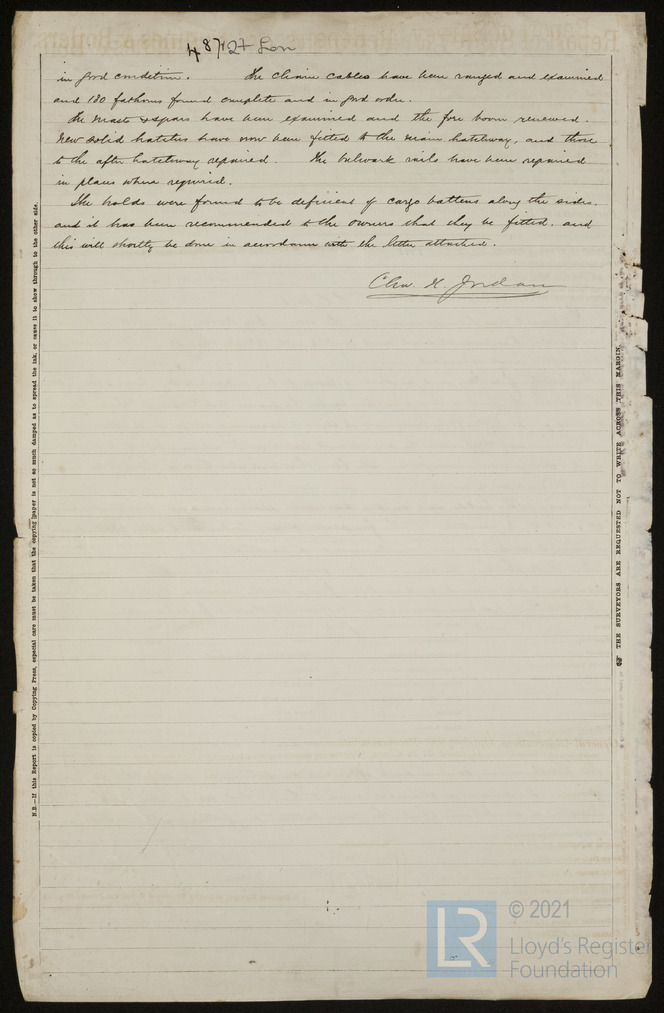 48727 Lon
in good condition. The Chain Cables have been ranged and examined
and 180 fathoms found complete and in good order.
The Masts & spars have been examined and the fore boom renewed.
New solid hatches have now been fitted to the main hatchway, and those
to the after hatchway repaired. The bulwark rails have been repaired
in places where required.
The holds were found to be deficient of cargo battens along the sides.
and it has been recommended to the owners that they be fitted. and
this will shortly be done in accordance with the letter attached.
Chas. H. Jordan
N.B.—If this Report is copied by Copying Press, especial care must be taken that the copying paper is not so much damped as to spread the ink, or cause it to show through to the other side.
THE SURVEYORS ARE REQUESTED NOT TO WRITE ACROSS THIS MARGIN.
LR
© 2021
Lloyd's Register
Foundation